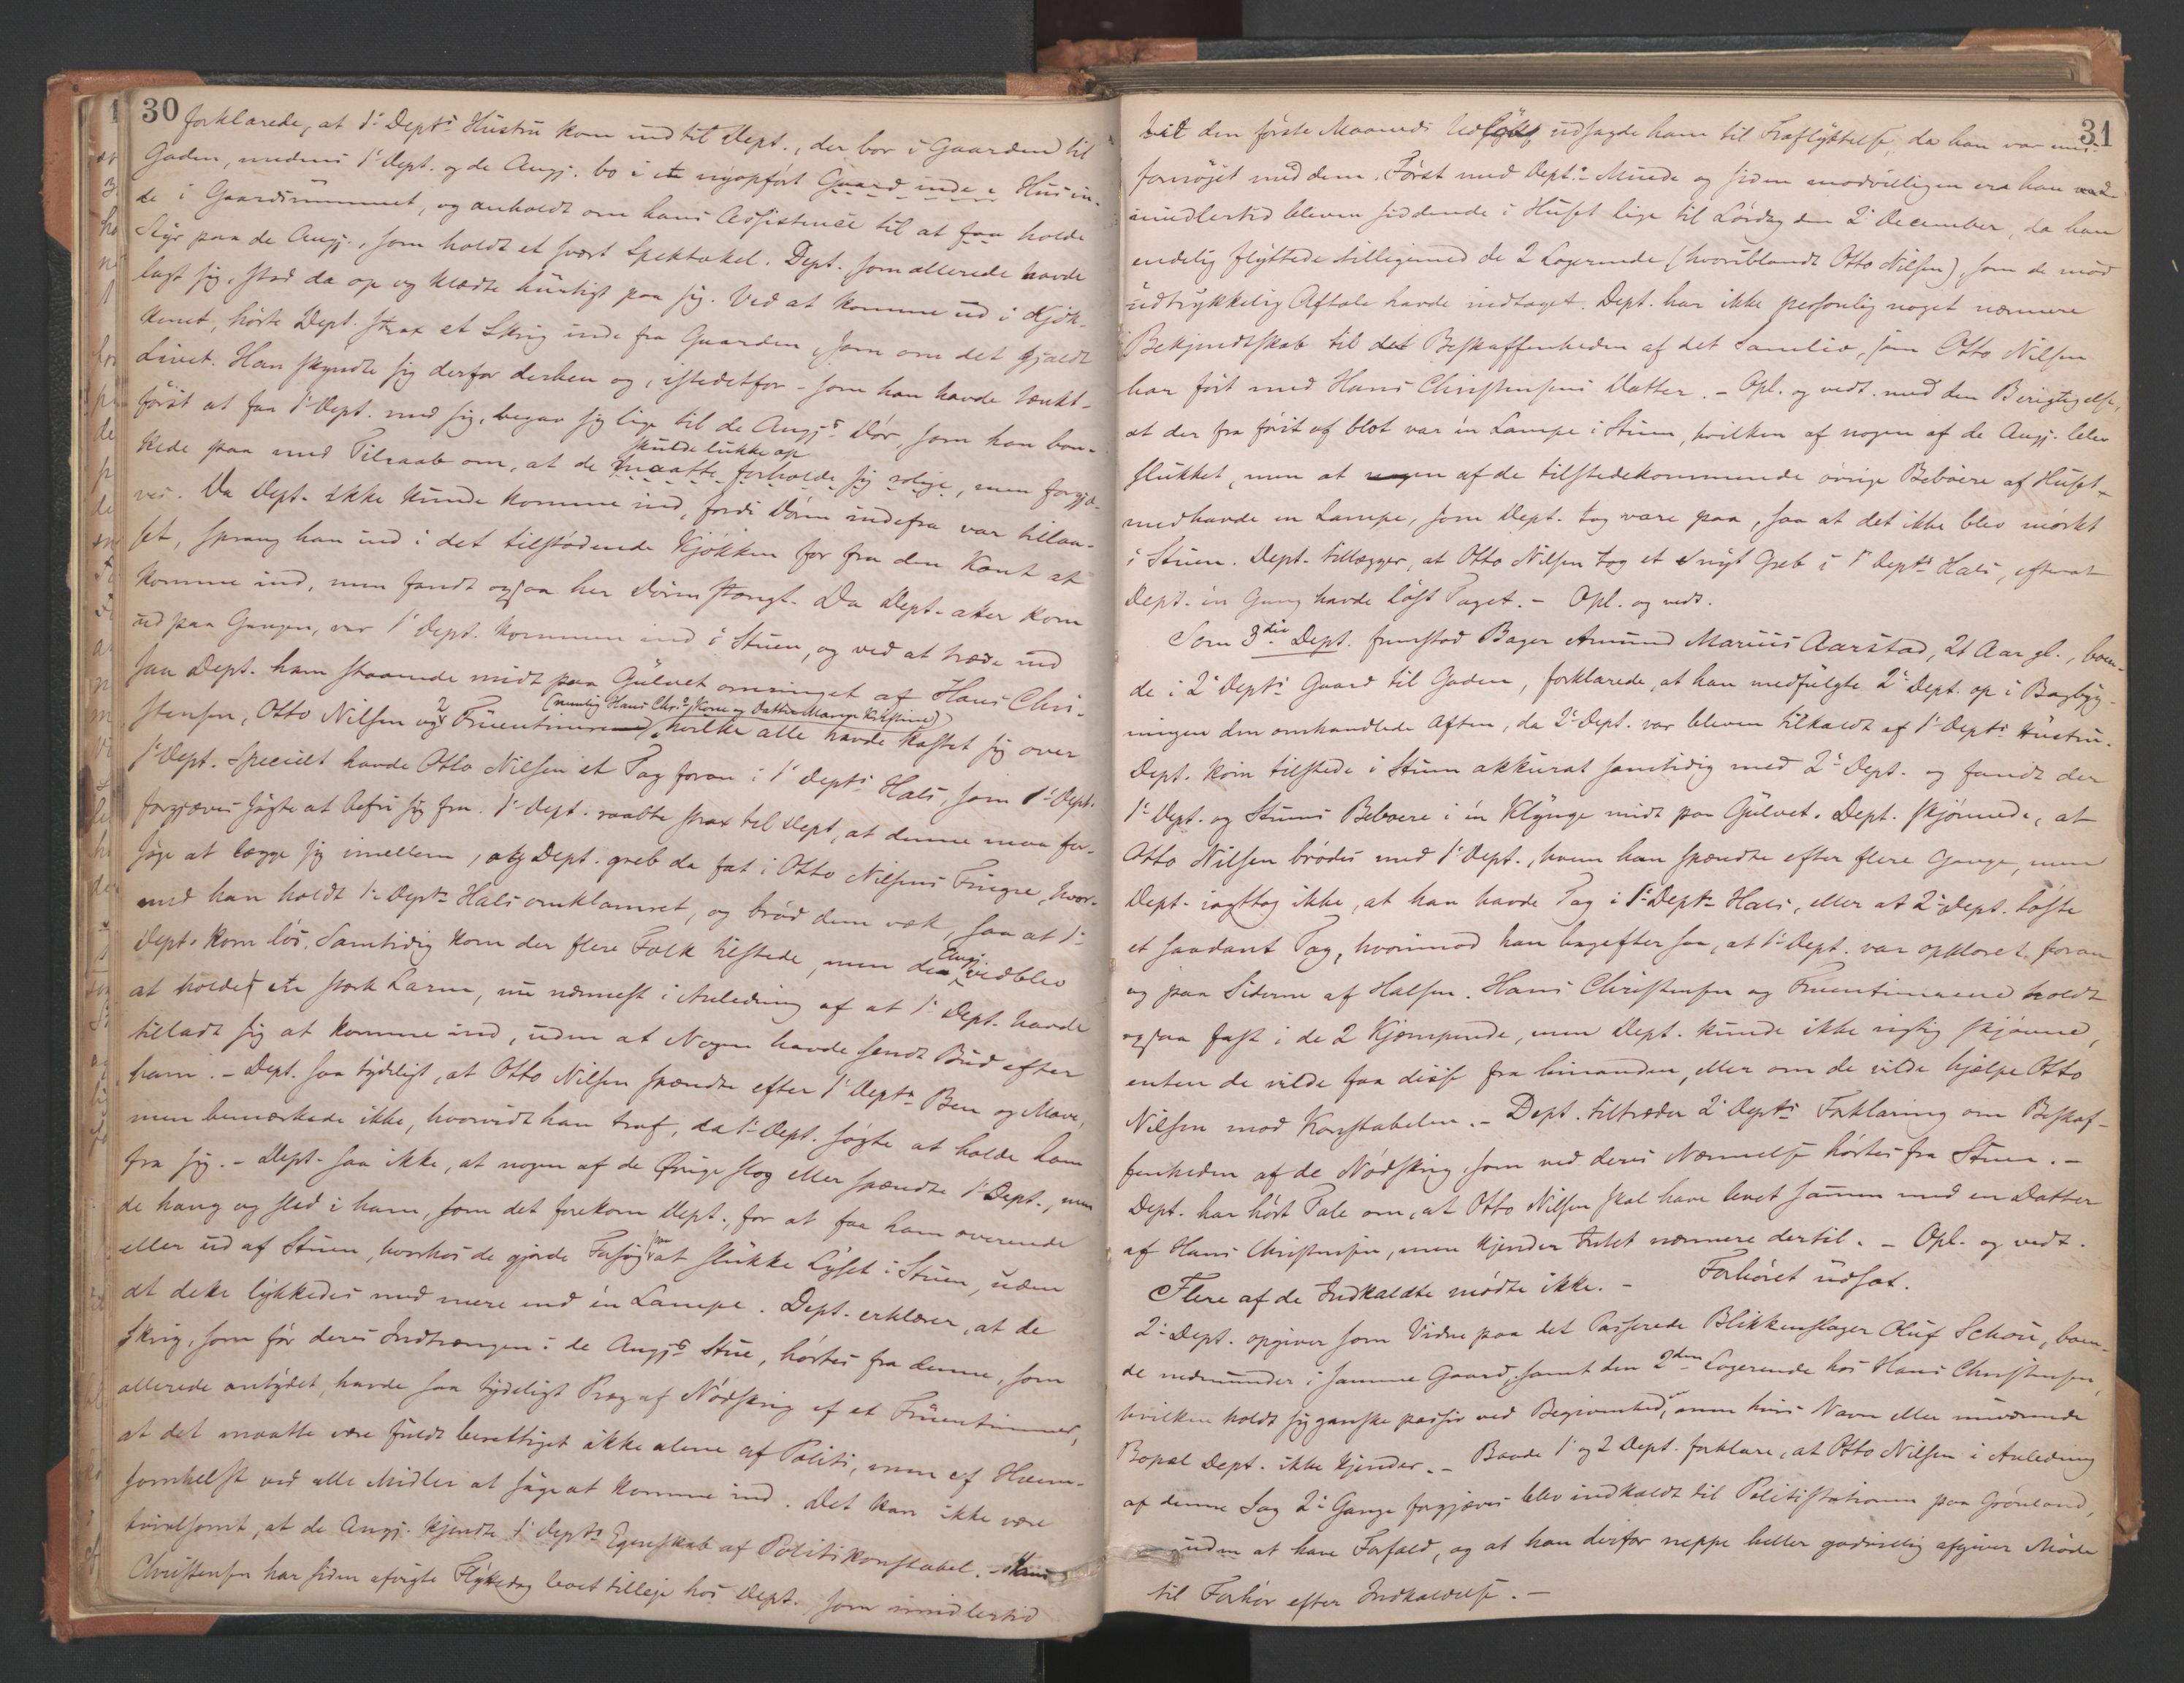 30
forklarede, at 1' Dept's Hustru kom ind til Dept., der bor i Gaarden til
Gaden, medens 1' Dept. og de Angj. bo i en nyopført Gaard inde i Husin-
de i Gaardsrummet, og anholdt om hans Assistence til at faa holde
Styr paa de Angj., som holdt et svært Spektakel. Dept. som allerede havde
lagt sig, stod da op og klædte hurtigt paa sig. Ved at komme ud i Kjøk-
kenet, hørte Dept. strax et Skrig inde fra Gaarden, som om det gjaldt
Livet. Han skyndte sig derfor derhen og, istedetfor – som han havde tænkt –
først at faa 1' Dept. med sig, begav sig lige til de Angj's Dør, som han ban-
kede paa med Tilraab om, at de maatte forholde sig rolige, men forgjæ-
skulde lukke op
ves. Da Dept. ikke kunde komme ind, fordi Døren indefra var tillaa-
set, sprang han ind i det tilstødende Kjøkken for fra den Kant at
komme ind, men fandt ogsaa her Døren stængt. Da Dept. atter kom
ud paa Gangen, var 1' Dept. kommen ind i Stuen, og ved at træde ind
saa Dept. ham staaende midt paa Gulvet omringet af Hans Chri-
stensen, Otto Nilsen og 2 Fruentimmer, hvilke alle havde kastet sig over
(nemlig Hans Chr's Kone og Datter Maren Kristine)
1' Dept. Specielt havde Otto Nilsen et Tag foran i 1' Dept's Hals, som 1' Dept.
forgjæves søgte at befri sig fra. 1' Dept. raabte strax til Dept, at denne maa for-
søge at lægge sig imellem, og Dept. greb da fat i Otto Nilsens Fingre, hvor-
med han holdt 1' Dept's Hals omklamret, og brød dem væk, saa at 1'
Dept. kom løs. Samtidig kom der flere Folk tilstede, men de Angj. vedblev
at holde en stærk Larm, nu nærmest i Anledning af at 1' Dept. havde
tilladt sig at komme ind, uden at Nogen havde sendt Bud efter
ham. – Dept. saa tydeligt, at Otto Nilsen spændte efter 1' Dept's Ben og Mave,
men bemærkede ikke, hvorvidt han traf, da 1' Dept. søgte at holde ham
fra sig. – Dept. saa ikke, at nogen af de Øvrige slog eller spændte 1' Dept., men
de hang og sled i ham, som det forekom Dept., for at faa ham overende
eller ud af Stuen, hvorhos de gjorde Forsøg paa at slukke Lyset i Stuen, uden
at dette lykkedes med mere end én Lampe. Dept. erklærer, at de
Skrig, som før deres Indtrængen i de Angj's Stue, hørtes fra denne, som
allerede antydet, havde saa tydeligt Præg af Nødskrig af et Fruentimmer,
at det maatte være fuldt berettiget ikke alene af Politi, men af Hvem-
somhelst ved alle Midler at søge at komme ind. Det kan ikke være
tvivlsomt, at de Angj. kjendte 1' Dept's Egenskab af Politikonstabel. – Hans
Christensen har siden afvigte Flyttedag boet tilleje hos Dept. som imidlertid
31
ved den første Maaneds Udløb udsagde ham til Fraflyttelse, da han var mis-
fornøjet med dem. Først med Dept's Minde og siden modvilligen era han
imidlertid bleven siddende i Huset lige til Lørdag den 2' December, da han
endelig flyttede tilligemed de 2 Logerende (hvoriblandt Otto Nilsen), som de mod
udtrykkelig Aftale havde indtaget. Dept. har ikke personlig noget nærmere
Bekjendtskab til det Beskaffenheden af det Samliv, som Otto Nilsen
har ført med Hans Christensens Datter. – Opl. og vedt. med den Berigtigelse,
at der fra først af blot var én Lampe i Stuen, hvilken af nogen af de Angj. blev
slukket, men at nogen af de tilstedekommende øvrige Beboere af Huset
medhavde en Lampe, som Dept. tog vare paa, saa at det ikke blev mørkt
i Stuen. Dept. tillægger, at Otto Nilsen tog et nyt Greb i 1' Dept's Hals, efterat
Dept. én Gang havde løst Taget. – Opl. og vedt.
Som 3die Dept. fremstod Bager Amund Marius Aarstad, 21 Aar gl., boen-
de i 2' Dept's Gaard til Gaden, forklarede, at han medfulgte 2' Dept. op i Bagbyg-
ningen den omhandlede Aften, da 2' Dept. var bleven tilkaldt af 1' Dept's Hustru.
Dept. kom tilstede i Stuen akkurat samtidig med 2' Dept. og fandt der
1' Dept. og Stuens Beboere i én Klynge midt paa Gulvet. Dept. skjønnede, at
Otto Nilsen brødes med 1' Dept., hvem han spændte efter flere Gange, men
Dept. iagttog ikke, at han havde Tag i 1' Dept's Hals, eller at 2' Dept. løste
et saadant Tag, hvorimod han bagefter saa, at 1' Dept. var opkloret foran
og paa Siderne af Halsen. Hans Christensen og Fruentimmerne holdt
ogsaa fast i de 2 Kjæmpende, men Dept. kunde ikke rigtig skjønne,
enten de vilde faa disse fra hinanden, eller om de vilde hjælpe Otto
Nilsen mod Konstabelen. – Dept. tiltræder 2' Dept's Forklaring om Beskaf-
fenheden af de Nødskrig, som ved deres Nærmelse hørtes fra Stuen. –
Dept. har hørt Tale om, at Otto Nilsen skal have levet sammen med en Datter
af Hans Christensen, men kjender Intet nærmere dertil. – Opl. og vedt.
Flere af de Indkaldte mødte ikke. – Forhøret udsat.
2' Dept. opgiver som Vidne paa det Passerede Blikkenslager Oluf Schou, boen-
de nedenunder i samme Gaard, samt den 2den Logerende hos Hans Christensen,
hvilken holdt sig ganske passiv ved Begivenheden, men hvis Navn eller nuværende
Bopæl Dept. ikke kjender. – Baade 1' og 2 Dept. forklare, at Otto Nilsen i Anledning
af denne Sag 2' Gange forgjæves blev indkaldt til Politistationen paa Grønland,
uden at have Forfald, og at han derfor neppe heller godvillig afgiver Møde
til Forhør efter Indkaldelse. –